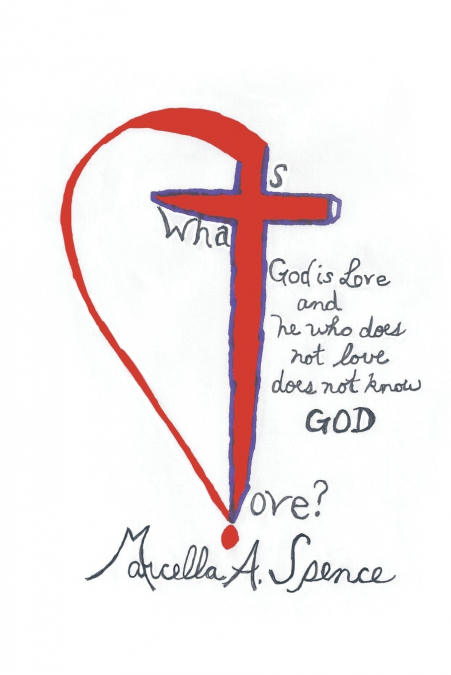 s
Wha
God is Love
and
he who does
not love
does not know
GOD
ove?
Marcella A. Spence